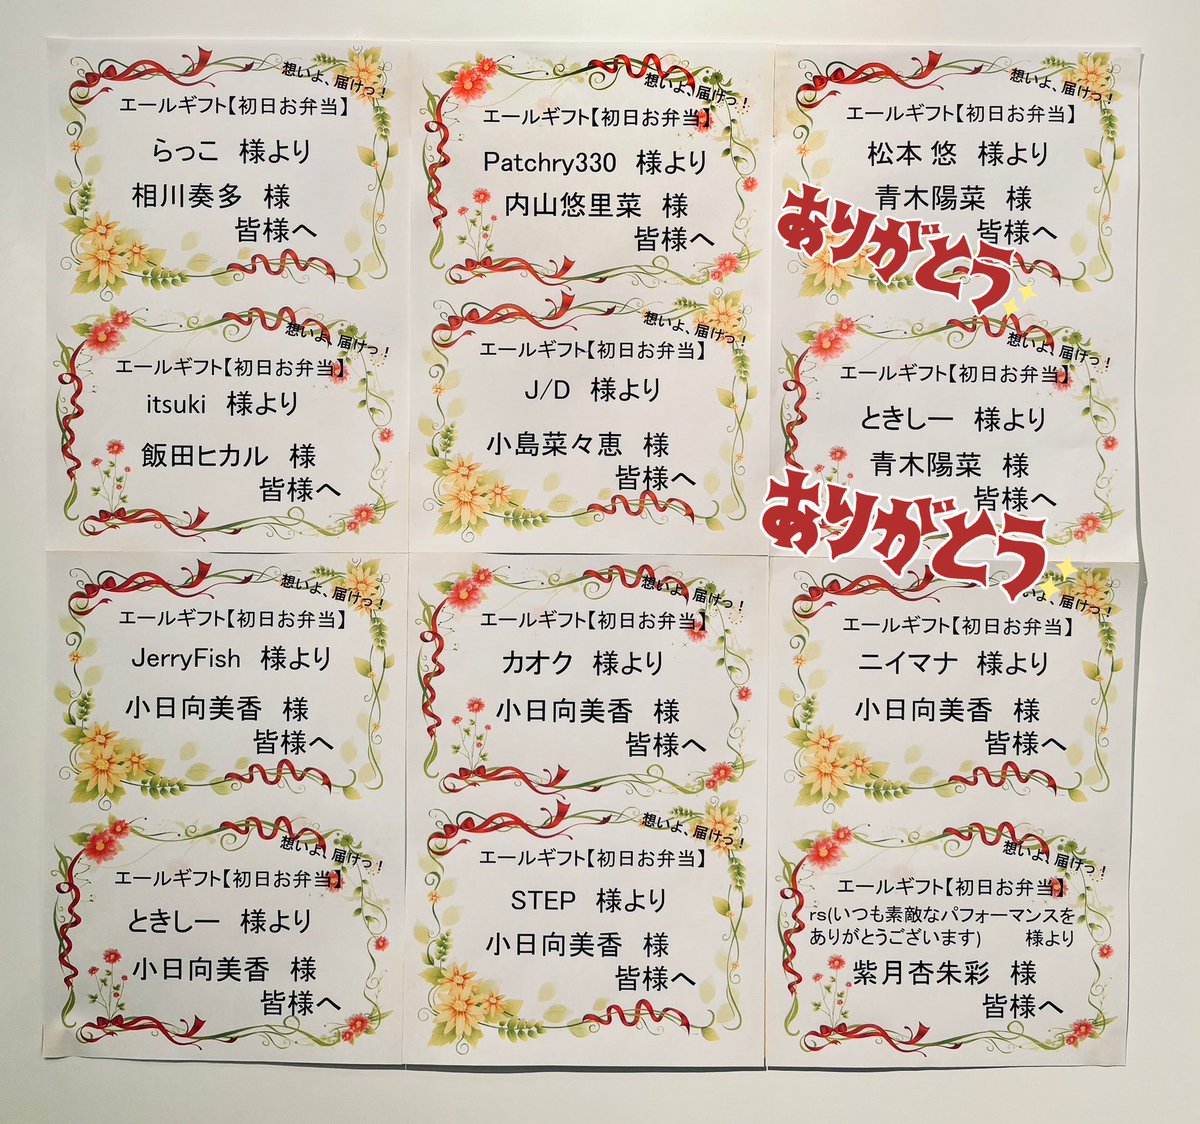 想いよ、届けっ！
エールギフト【初日お弁当】
らっこ 様より
相川奏多 様
皆様へ
想いよ、届けっ！
エールギフト【初日お弁当】
Patchry330 様より
内山悠里菜 様
皆様へ
想いよ、届けっ！
エールギフト【初日お弁当】
松本 悠 様より
青木陽菜 様
皆様へ
ありがとう
想いよ、届けっ！
エールギフト【初日お弁当】
itsuki 様より
飯田ヒカル 様
皆様へ
想いよ、届けっ！
エールギフト【初日お弁当】
J/D 様より
小島菜々恵 様
皆様へ
想いよ、届けっ！
エールギフト【初日お弁当】
ときしー 様より
青木陽菜 様
皆様へ
ありがとう
想いよ、届けっ！
エールギフト【初日お弁当】
JerryFish 様より
小日向美香 様
皆様へ
想いよ、届けっ！
エールギフト【初日お弁当】
カオク 様より
小日向美香 様
皆様へ
いよ、届けっ！
エールギフト【初日お弁当】
ニイマナ 様より
小日向美香 様
皆様へ
想いよ、届けっ！
エールギフト【初日お弁当】
ときしー 様より
小日向美香 様
皆様へ
想いよ、届けっ！
エールギフト【初日お弁当】
STEP 様より
小日向美香 様
皆様へ
想いよ、届けっ！
エールギフト【初日お弁当】
rs(いつも素敵なパフォーマンスを
ありがとうございます) 様より
紫月杏朱彩 様
皆様へ